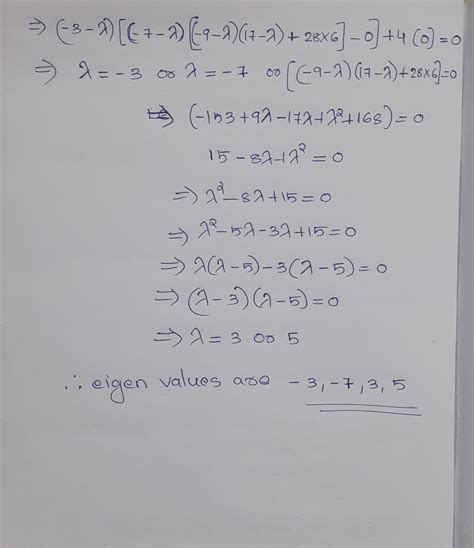 ⇒ (-3-λ)[(-7-λ)[(-9-λ)(17-λ)+28×6]-0]+4(0)=0
⇒ λ=-3 or λ=-7 or [(-9-λ)(17-λ)+28×6]=0
⇒ (-153+9λ-17λ+λ²+168)=0
15-8λ+λ²=0
⇒ λ²-8λ+15=0
⇒ λ²-5λ-3λ+15=0
⇒ λ(λ-5)-3(λ-5)=0
⇒ (λ-3)(λ-5)=0
⇒ λ=3 or 5
∴ eigen values are -3,-7,3,5